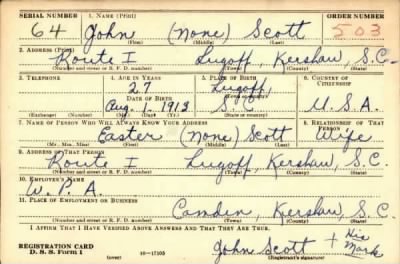 SERIAL NUMBER 1. NAME (Print) ORDER NUMBER
64 John (None) Scott 503
(First) (Middle) (Last)
2. ADDRESS (Print)
Route I Lugoff, Kershaw, S.C.
(Number and street or R. F. D. number) (Town) (County) (State)
3. TELEPHONE 4. AGE IN YEARS 5. PLACE OF BIRTH 6. COUNTRY OF CITIZENSHIP
27 Lugoff,
DATE OF BIRTH (Town or county)
Aug. 1. 1913 S.C. U.S.A.
(Exchange) (Number) (Mo.) (Day) (Yr.) (State or country)
7. NAME OF PERSON WHO WILL ALWAYS KNOW YOUR ADDRESS 8. RELATIONSHIP OF THAT PERSON
Easter (None) Scott Wife
(Mr., Mrs., Miss) (First) (Middle) (Last)
9. ADDRESS OF THAT PERSON
Route I Lugoff, Kershaw, S.C.
(Number and street or R. F. D. number) (Town) (County) (State)
10. EMPLOYER'S NAME
W.P.A.
11. PLACE OF EMPLOYMENT OR BUSINESS
Camden, Kershaw, S.C.
(Number and street or R. F. D. number) (Town) (County) (State)
I AFFIRM THAT I HAVE VERIFIED ABOVE ANSWERS AND THAT THEY ARE TRUE.
REGISTRATION CARD John Scott + His Mark
D. S. S. Form 1 (over) 16-17105 (Registrant's signature)